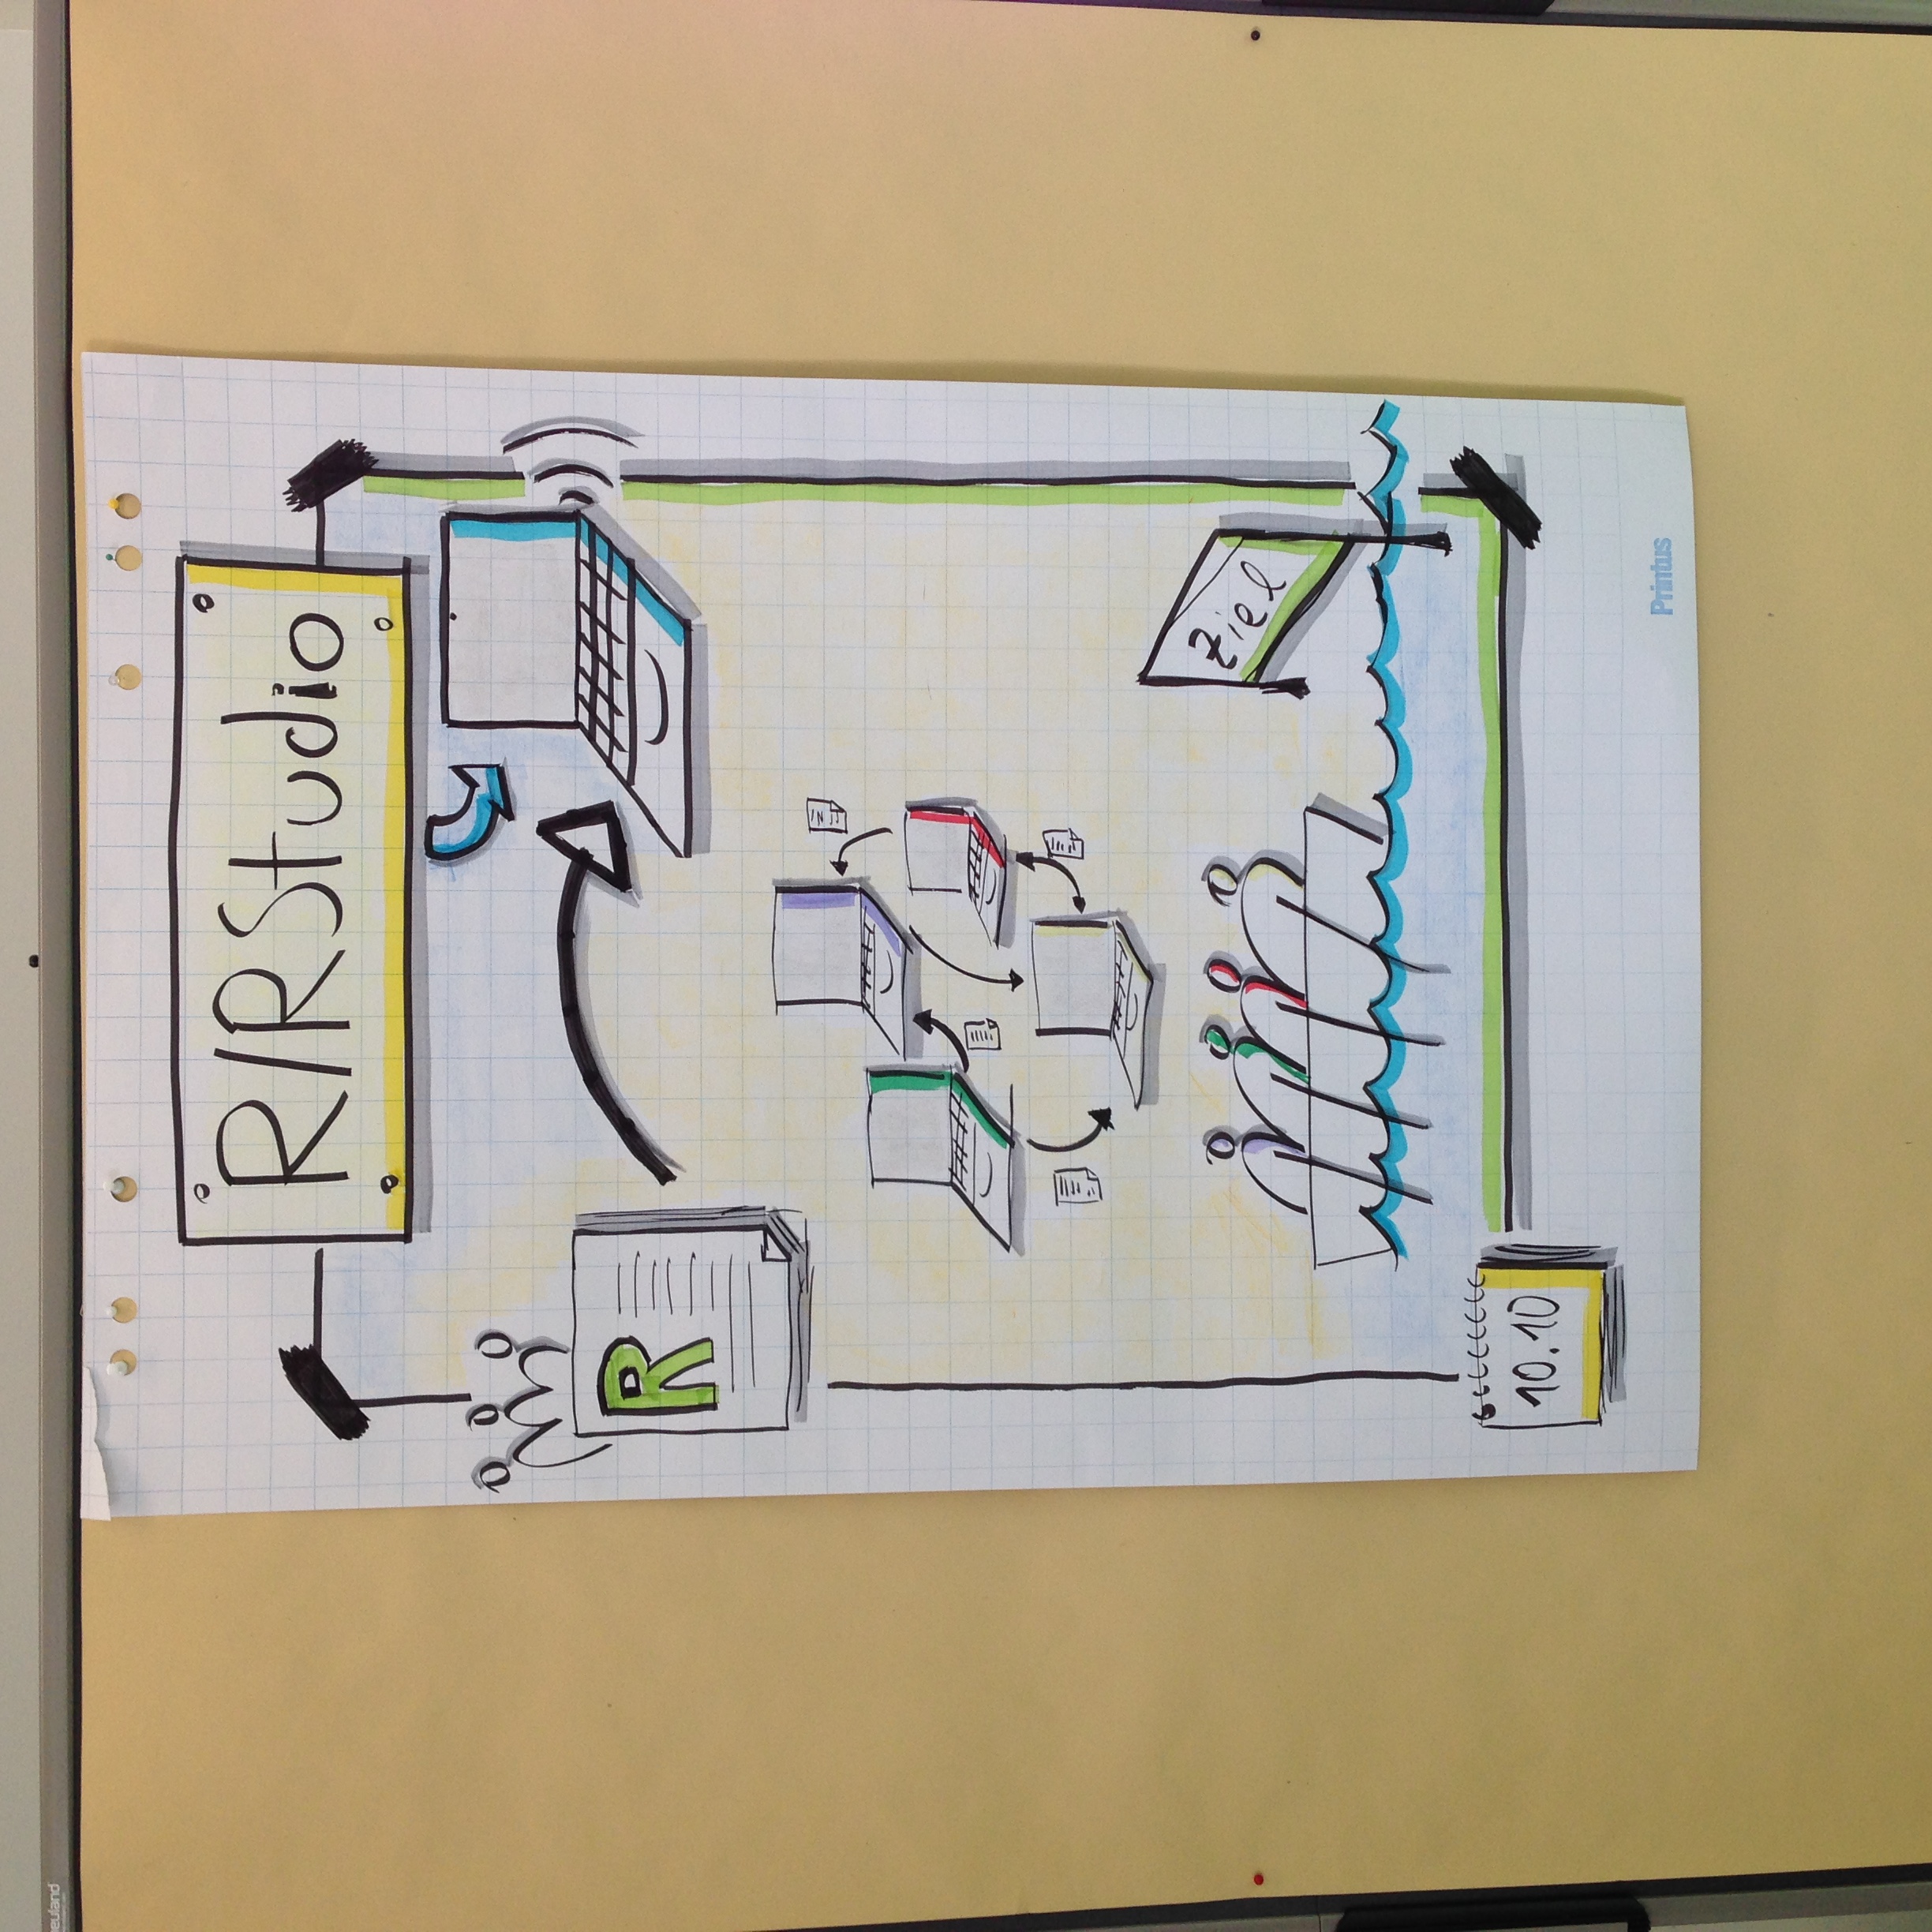 neuland
R/RStudio
R
Ziel
10.10
Printus